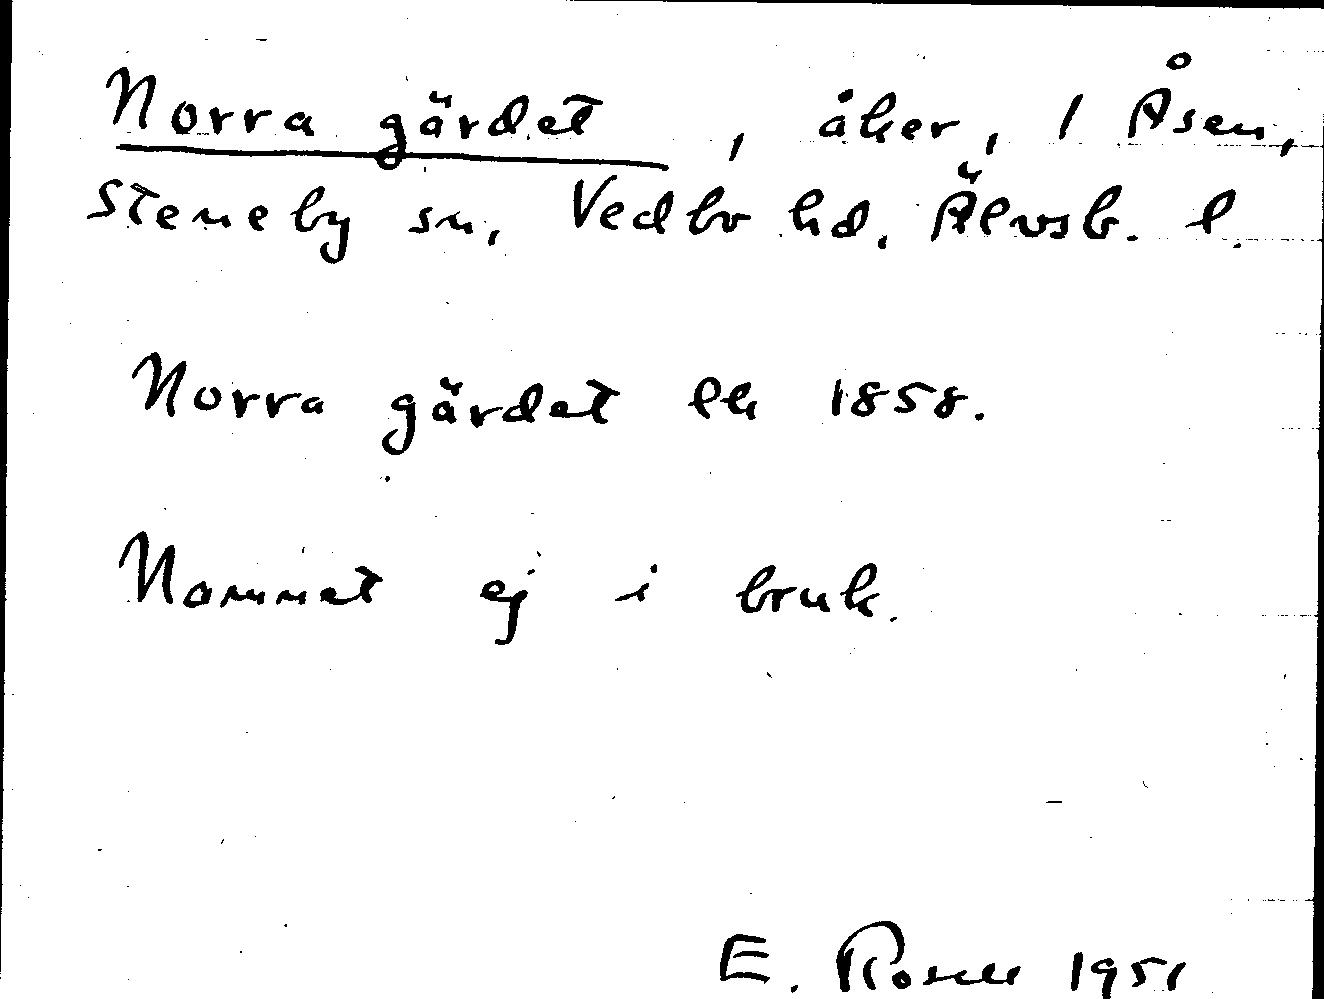 Norra gärdet, åker, 1 Åsen,
Steneby sn, Vedbo hd. Älvsb. l.
Norra gärdet lk 1858.
Namnet ej i bruk.
E. Rosell 1951